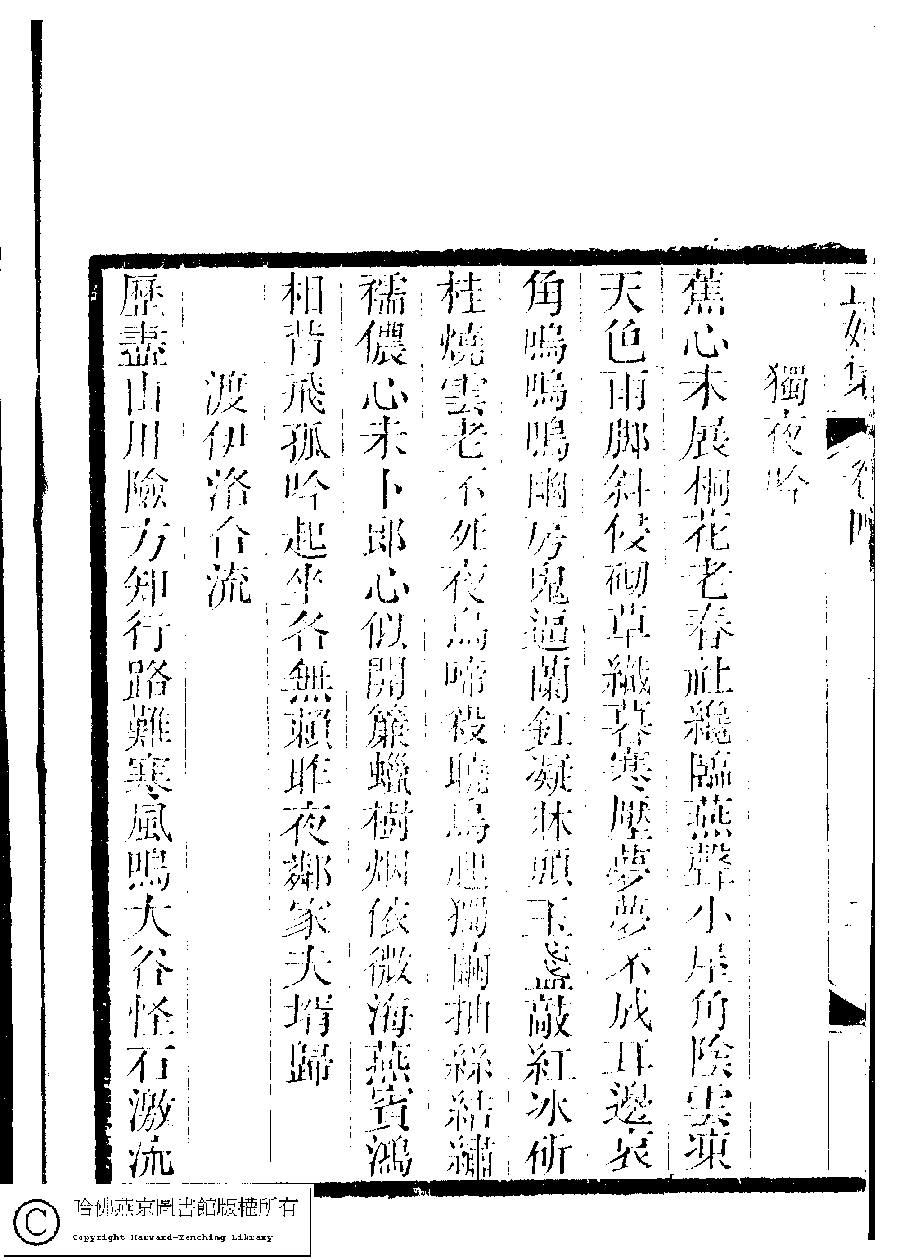 獨夜吟
蕉心未展桐花老春社纔臨燕聲小星角陰雲凍
天色雨脚斜侵砌草織暮寒壓夢夢不成耳邊哀
角鳴鳴鳴幽房鬼逼蘭釭凝牀頭玉盞敲紅冰斫
桂燒雲老不死夜烏啼殺曉烏起獨繭抽絲結繡
襦儂心未卜郎心似開簾蠟樹烟依微海燕賓鴻
相背飛孤吟起坐各無賴昨夜鄰家夫壻歸
渡伊洛合流
歷盡山川險方知行路難寒風鳴大谷怪石激流
哈佛燕京圖書館版權所有
Copyright Harvard-Yenching Library